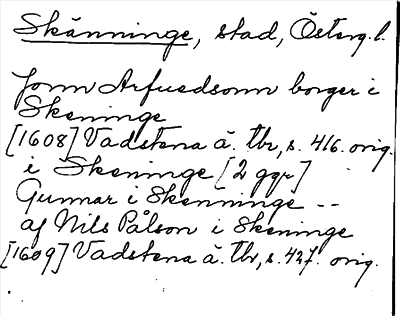 Skänninge, stad, Österg.l.
Jonn Arfuedsonn borger i
Skeninge
[1608] Vadstena ä. tbr, s. 416. orig.
i Skeninge [2 ggr]
Gunnar i Skenninge --
af Nils Pålson i Skeninge
[1609] Vadstena ä. tbr, s. 427. orig.